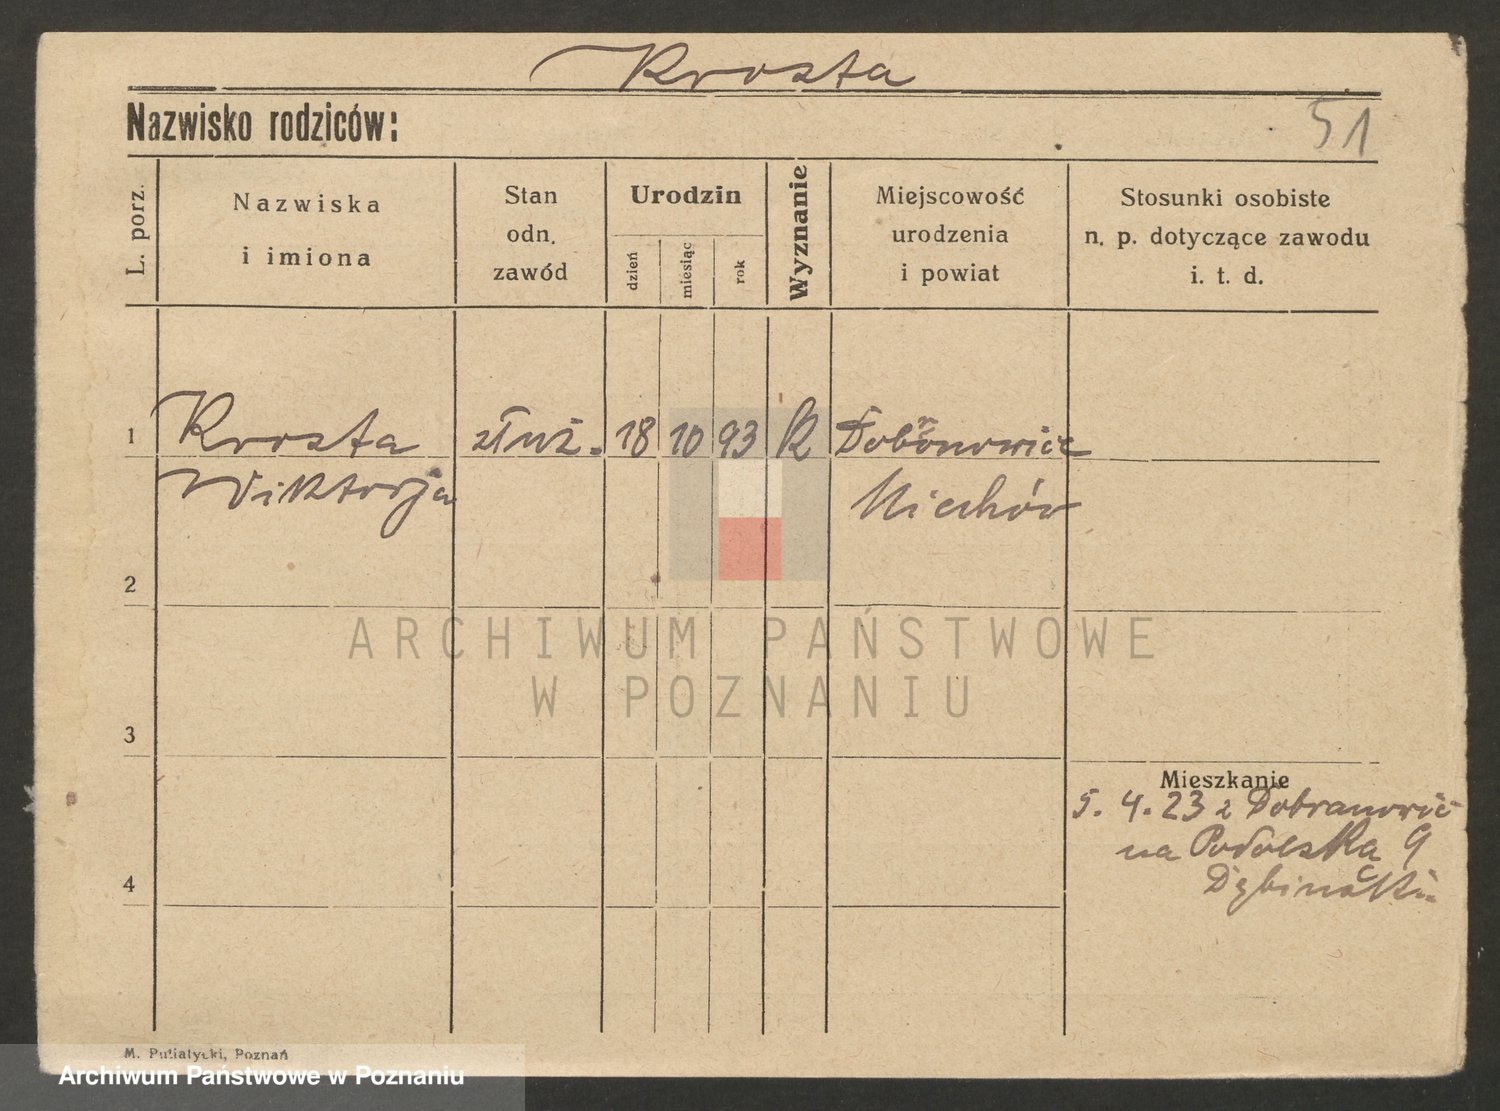 Krosta
Nazwisko rodziców:
51
L. porz.
Nazwiska
i imiona
Stan
odn.
zawód
Urodzin
dzień
miesiąc
rok
Wyznanie
Miejscowość
urodzenia
i powiat
Stosunki osobiste
n. p. dotyczące zawodu
i. t. d.
1 Krosta służ. 18 10 93 R
Wiktorja Miechów
2
ARCHIWUM PAŃSTWOWE
W POZNANIU
3
Mieszkanie
5. 4. 23 z Dobranowic
4
na Podolska 9
M. Putiatycki, Poznań
Archiwum Państwowe w Poznaniu